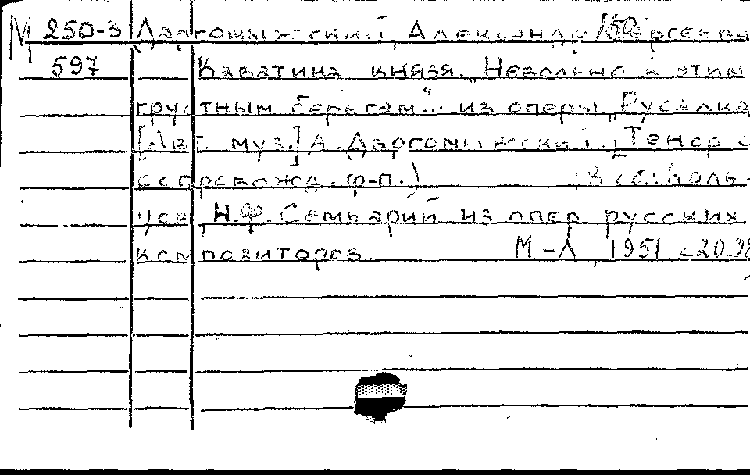 М 250-3 Даргомыжский, Александр Сергеевич
597 Каватина князя „Невольно к этим
грустным берегам" из оперы „Русалка
[Авт. муз.] А. Даргомыжский. [Тенор с
сопровожд. ф-п.)
Н.Ф. Семинарий из опер русских
композиторов М-Л 1951 с 20-38